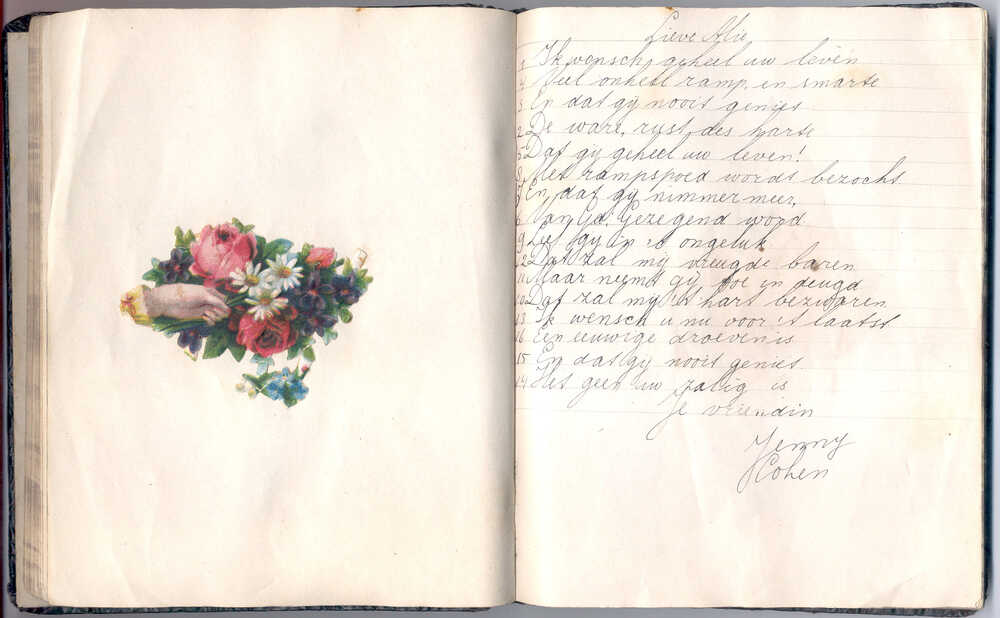 Lieve Alie
1 Ik wonsch, geheel uw leven
4 Veel onheil ramp en smarte
3 En dat gij nooit genies
2 De ware, rust des harte
5 Dat gij geheel uw leven!
8 Met rampspoed wordt bezocht
7 En dat gij nimmermeer,
6 Van God. Gezegend word
9 Leef gij in 10 ongeluk
12 Dat zal mij vreugde baren
11 Maar neemt gij toe in deugd
10 Dat zal mij 't hart bezwaren
13 Ik wensch u nu voor 't laatst
16 Een eeuwige droevenis
15 En dat gij nooit genies
14 Het geen uw zalig is
Je vriendin
Jenny
Cohen